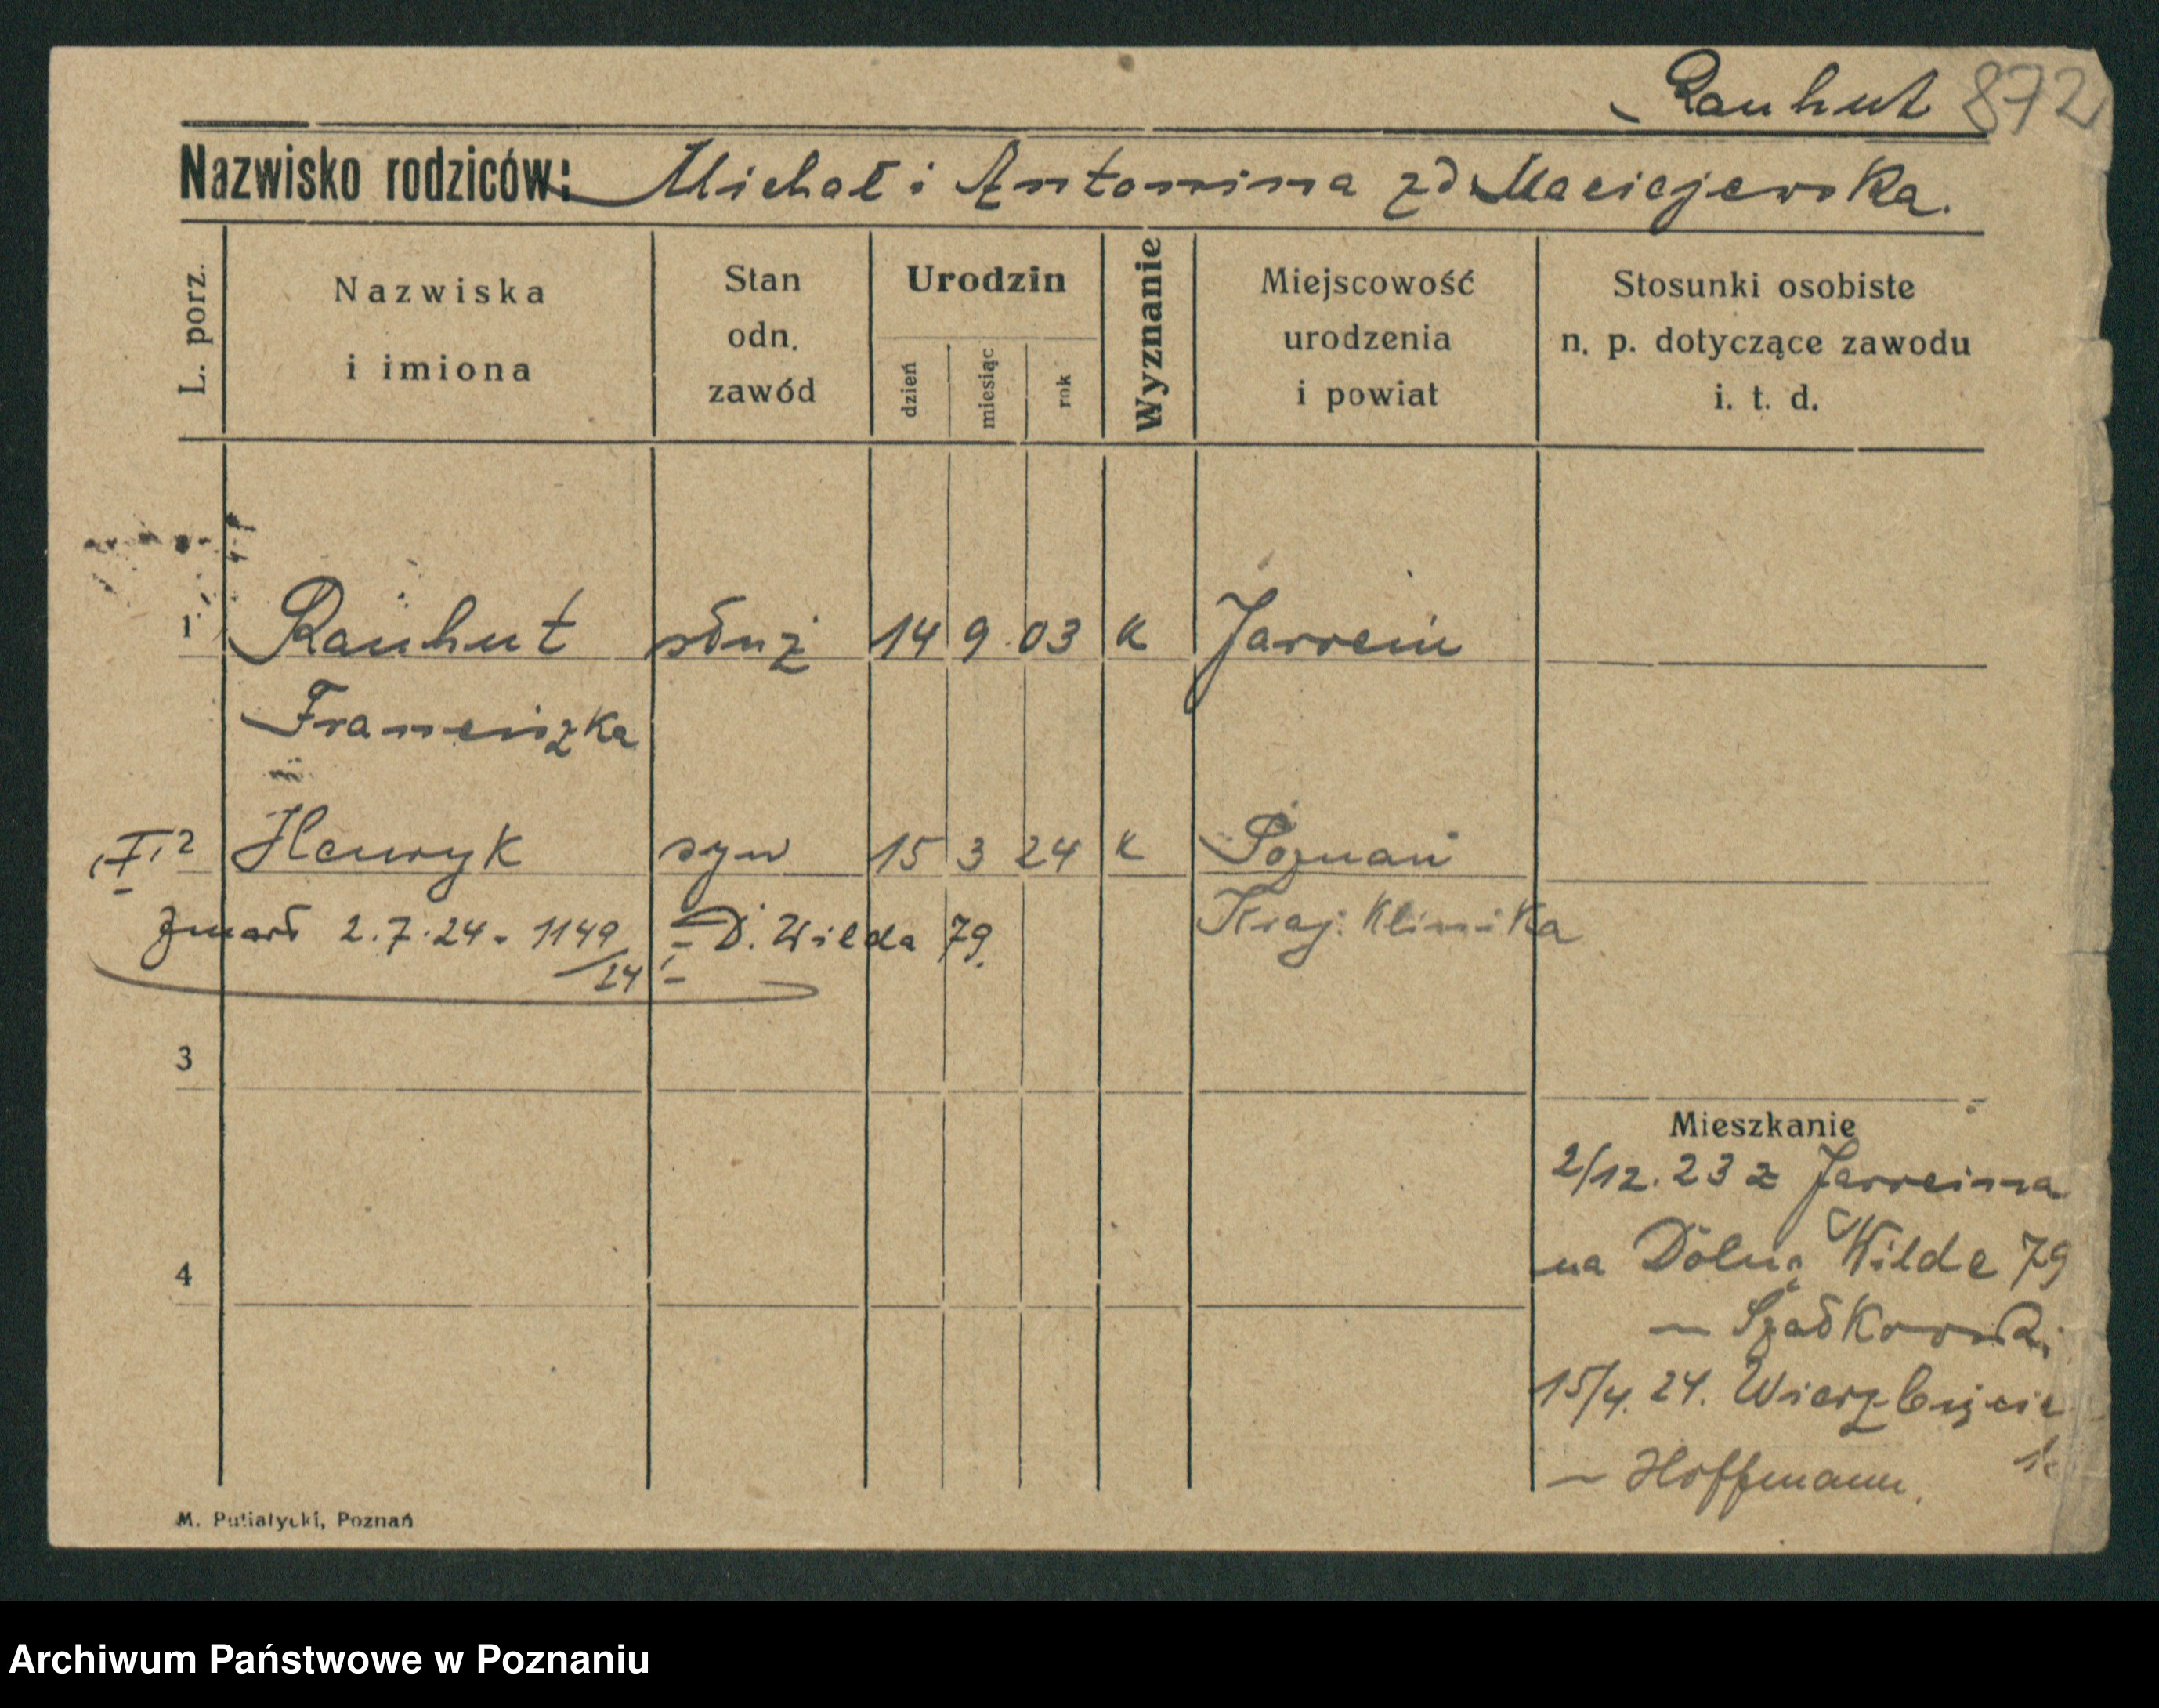 Rauhut 872
Nazwisko rodziców: Michał i Antonina zd Maciejewska.
L. porz.
Nazwiska
i imiona
Stan
odn.
zawód
Urodzin
dzień
miesiąc
rok
Wyznanie
Miejscowość
urodzenia
i powiat
Stosunki osobiste
n. p. dotyczące zawodu
i. t. d.
1 Rauhut służ 14 9 03 k Jarocin
Franciszka
2 Henryk syn 15 3 24 k Poznań
Kraj. Klinika
zmarł 2.7.24 - 1149/24 - D. Wilda 79.
3
4
Mieszkanie
2/12.23 z Jarocina
na Dolną Wildę 79
— Szadkowski
15/4.24. Wierzbięcice
— Hoffmann.
M. Putiatycki, Poznań
Archiwum Państwowe w Poznaniu